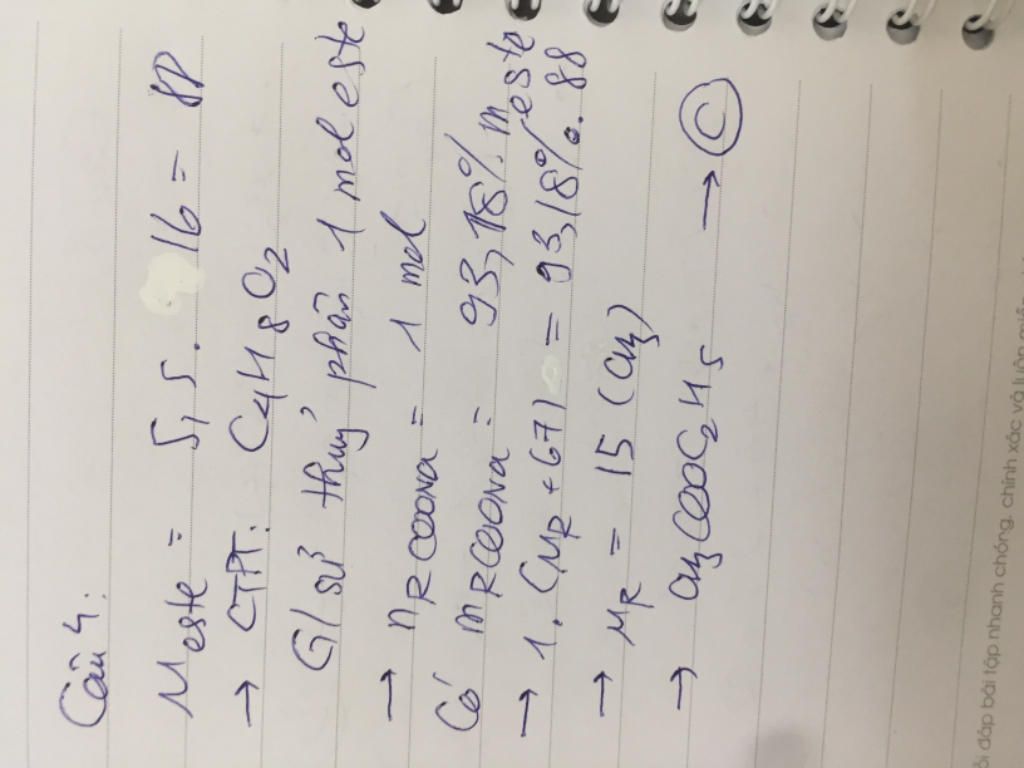 Câu 4:
Meste = 5,5 . 16 = 88
→ CTPT: C4H8O2
G/sử thuỷ phân 1 mol este
→ nRCOONa = 1 mol
Có mRCOONa = 93,18% meste
→ 1. (MR+67) = 93,18%. 88
→ MR = 15 (CH3)
→ CH3COOC2H5 → C
đáp bài tập nhanh chóng, chính xác và luôn miễn